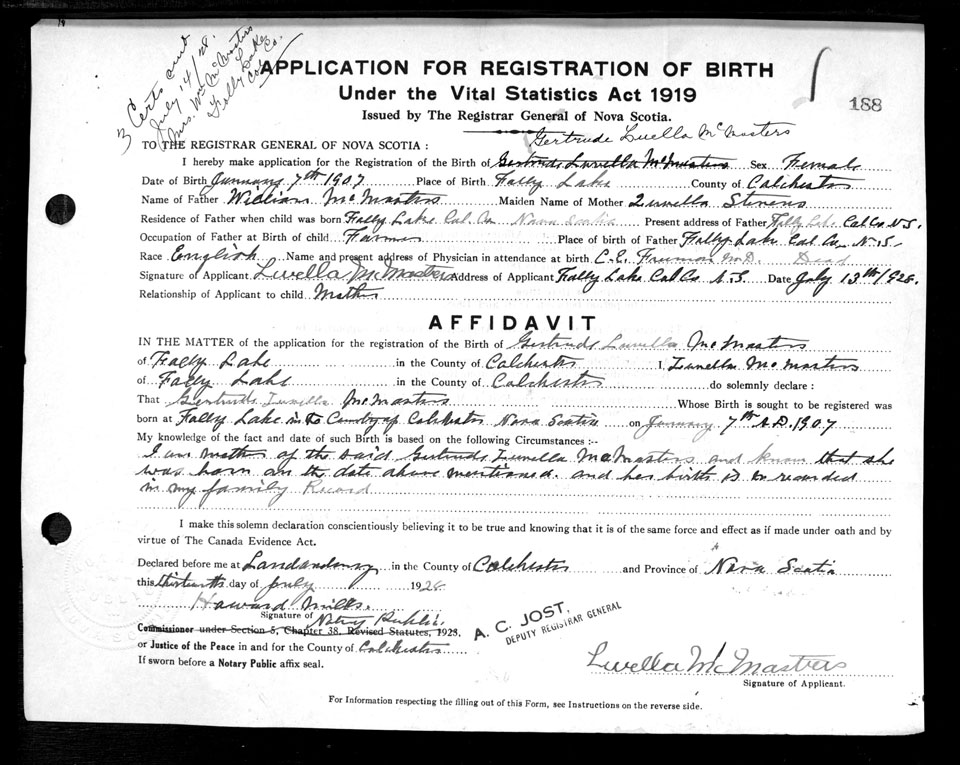 3 Certs sent
July 14/28.
Mrs. Wm McMasters
Folly Lake
Col. Co.
APPLICATION FOR REGISTRATION OF BIRTH
Under the Vital Statistics Act 1919
188
Issued by The Registrar General of Nova Scotia.
Gertrude Luella McMasters
TO THE REGISTRAR GENERAL OF NOVA SCOTIA :
I hereby make application for the Registration of the Birth of Gertrude Luvella McMasters Sex Female
Date of Birth January 7th 1907 Place of Birth Folly Lake County of Colchester
Name of Father William McMasters Maiden Name of Mother Luvella Stevens
Residence of Father when child was born Folly Lake Col. Co. Nova Scotia Present address of Father Folly Lake Col Co N S.
Occupation of Father at Birth of child Farmer Place of birth of Father Folly Lake Col. Co. N.S.
Race English Name and present address of Physician in attendance at birth C. E. Freeman M.D. Dead
Signature of Applicant Luvella McMasters Address of Applicant Folly Lake Col Co N.S. Date July 13th/1928.
Relationship of Applicant to child Mother
AFFIDAVIT
IN THE MATTER of the application for the registration of the Birth of Gertrude Luvella McMasters
of Folly Lake in the County of Colchester I Luvella McMasters
of Folly Lake in the County of Colchester do solemnly declare :
That Gertrude Luvella McMasters Whose Birth is sought to be registered was
born at Folly Lake in to County of Colchester Nova Scotia on January 7th A.D. 1907
My knowledge of the fact and date of such Birth is based on the following Circumstances :--
I am mother of the said Gertrude Luvella McMasters and know that she
was born on the date above mentioned. and her birth is so recorded
in my family Record
I make this solemn declaration conscientiously believing it to be true and knowing that it is of the same force and effect as if made under oath and by
virtue of The Canada Evidence Act.
Declared before me at Londonderry in the County of Colchester and Province of Nova Scotia
this thirteenth day of July 1928
Howard Mills.
Signature of Notary Public.
Commissioner under Section 5, Chapter 38, Revised Statutes, 1923.
A. C. JOST,
DEPUTY REGISTRAR GENERAL
or Justice of the Peace in and for the County of Colchester
If sworn before a Notary Public affix seal.
Luvella McMasters
Signature of Applicant.
For Information respecting the filling out of this Form, see Instructions on the reverse side.